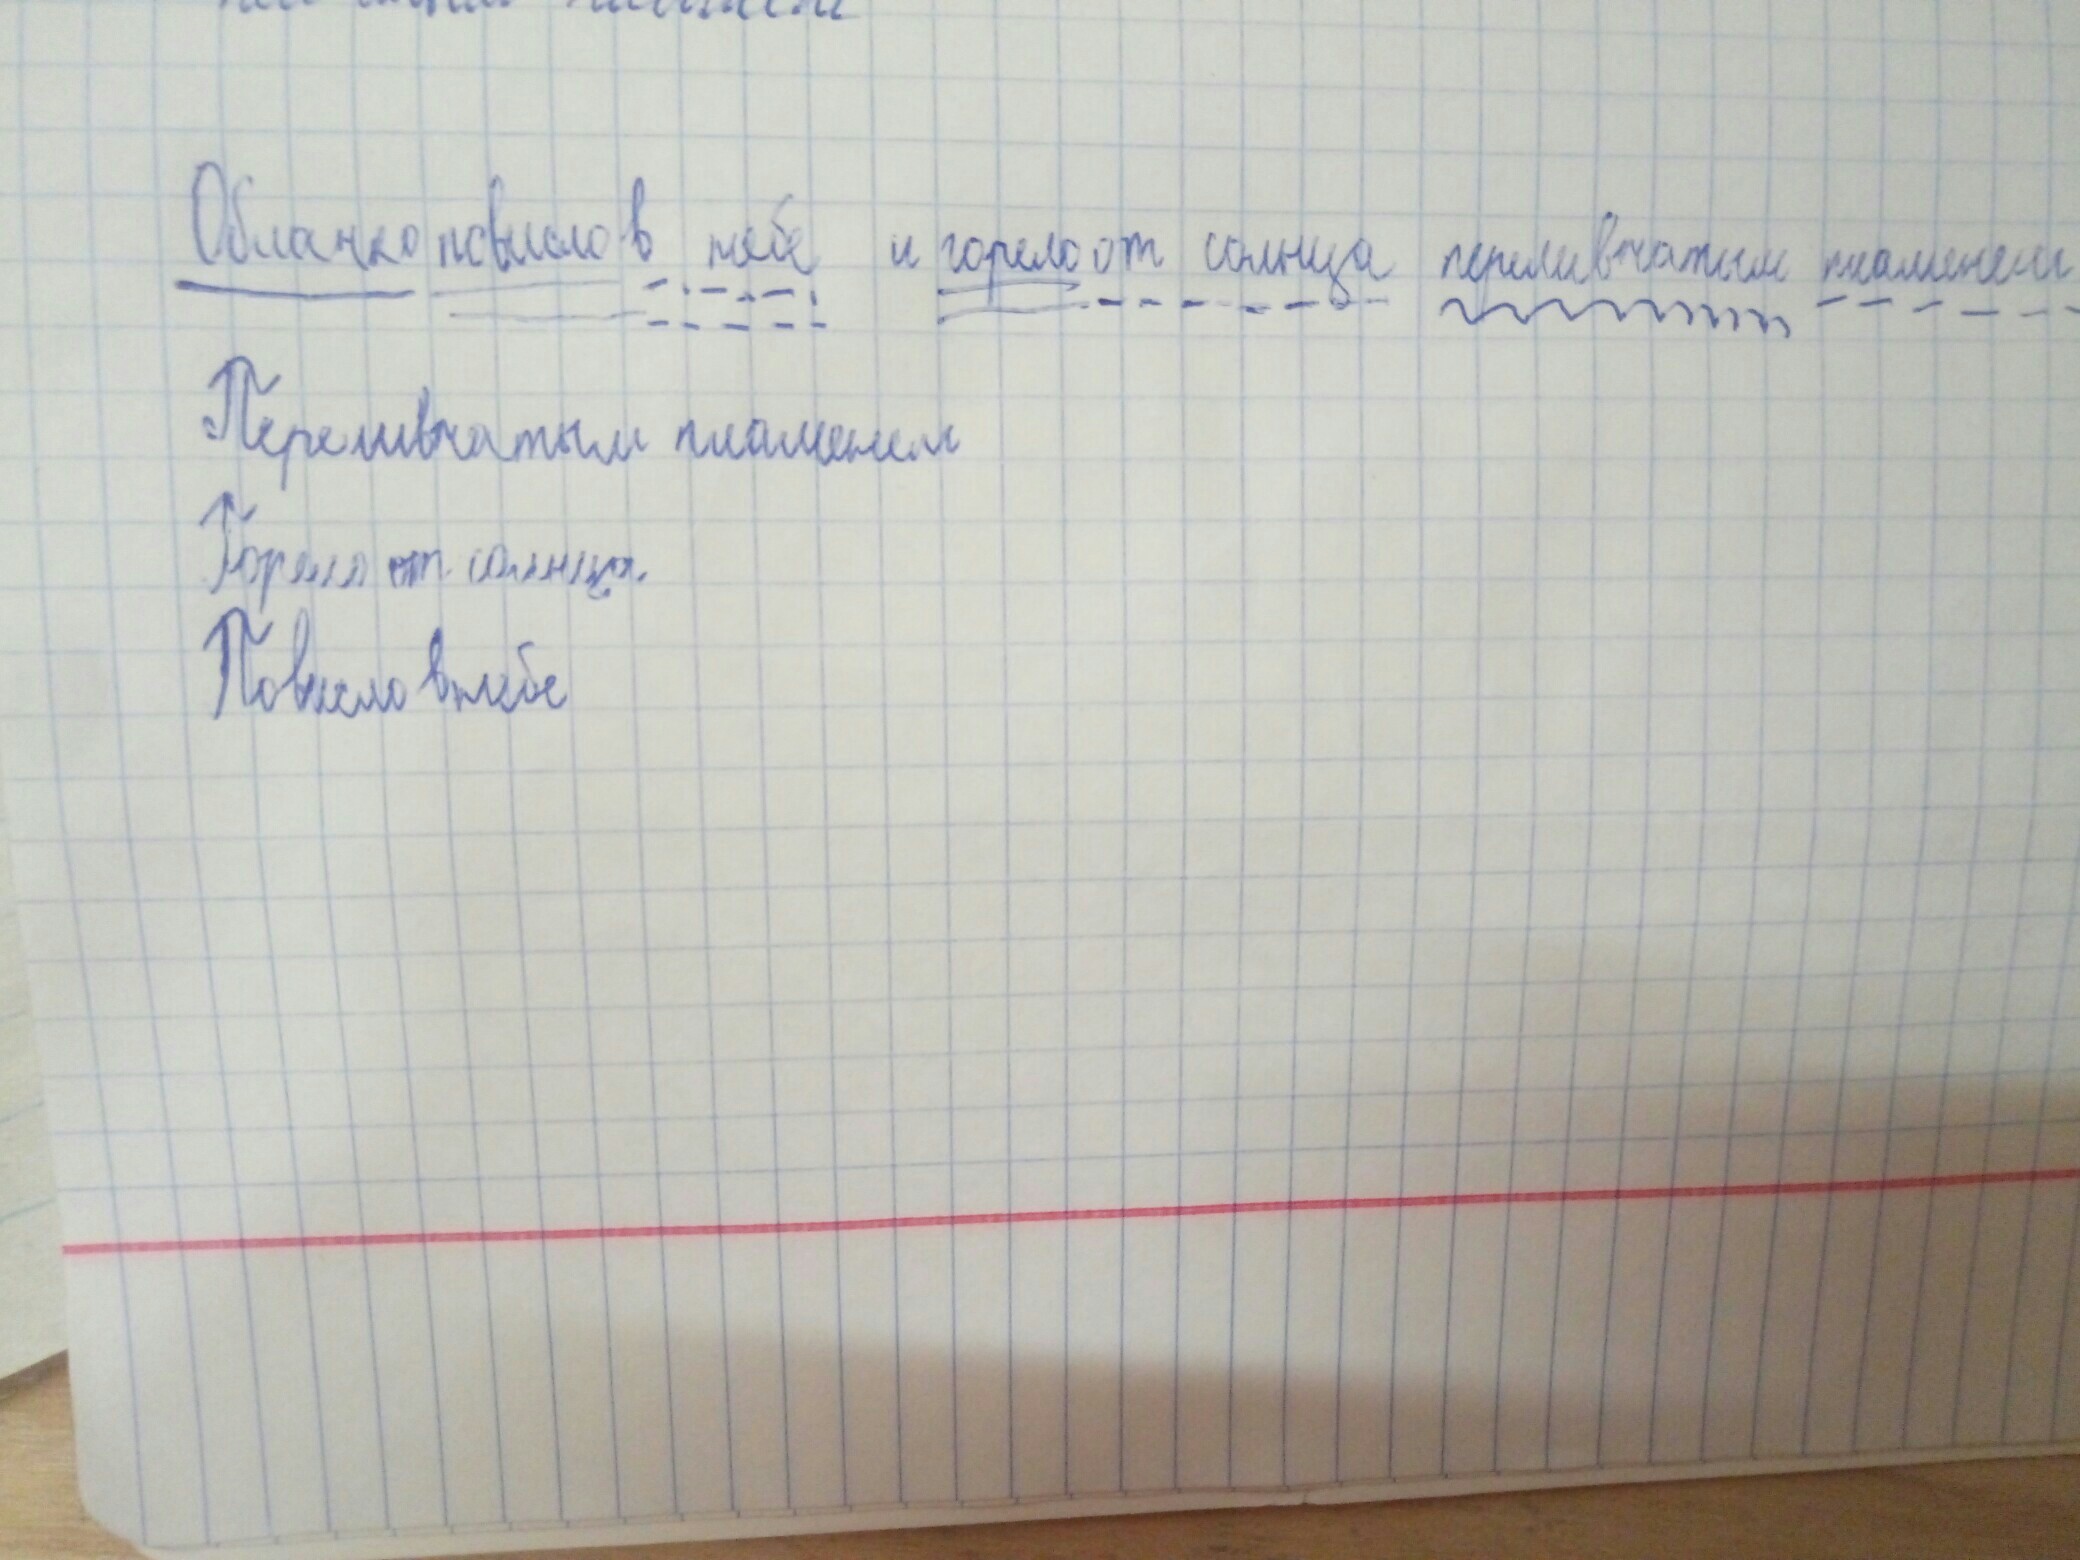 Обланко повисло в небе и горело от солнца переливчатым пламенем
Переливчатым пламенем
Горело от солнца.
Повисло в небе